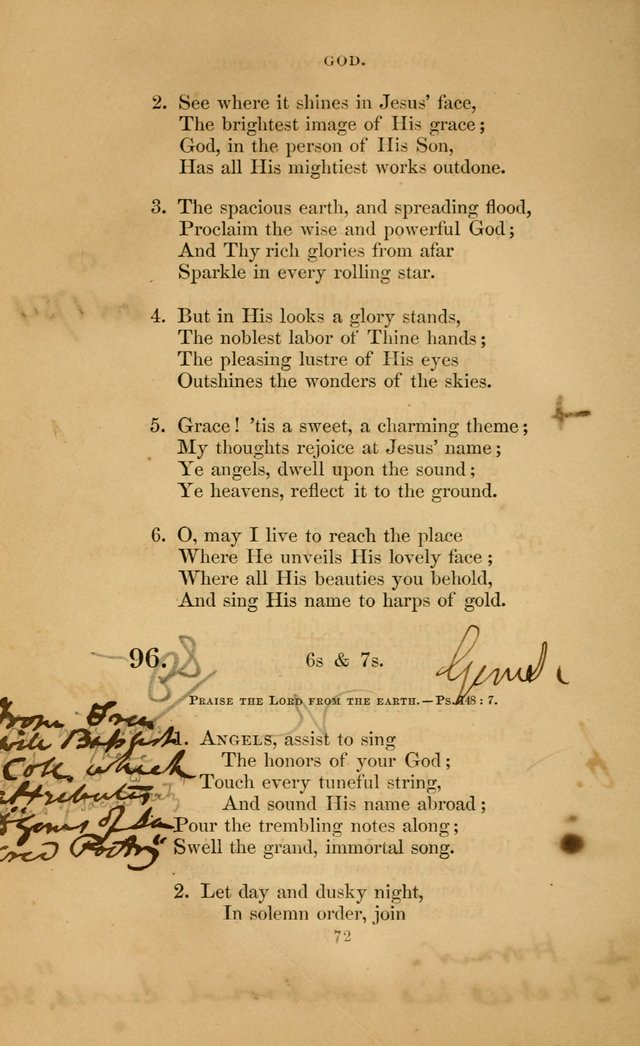 GOD.
2. See where it shines in Jesus' face,
The brightest image of His grace;
God, in the person of His Son,
Has all His mightiest works outdone.
3. The spacious earth, and spreading flood,
Proclaim the wise and powerful God;
And Thy rich glories from afar
Sparkle in every rolling star.
4. But in His looks a glory stands,
The noblest labor of Thine hands;
The pleasing lustre of His eyes
Outshines the wonders of the skies.
5. Grace! 'tis a sweet, a charming theme;
My thoughts rejoice at Jesus' name;
Ye angels, dwell upon the sound;
Ye heavens, reflect it to the ground.
6. O, may I live to reach the place
Where He unveils His lovely face;
Where all His beauties you behold,
And sing His name to harps of gold.
96. 6s & 7s.
PRAISE THE LORD FROM THE EARTH.—Ps. 148: 7.
From Free
will Baptist
Coll. which
attributes
Gems of Sa
cred Poetry"
1. ANGELS, assist to sing
The honors of your God;
Touch every tuneful string,
And sound His name abroad;
Pour the trembling notes along;
Swell the grand, immortal song.
2. Let day and dusky night,
In solemn order, join
72